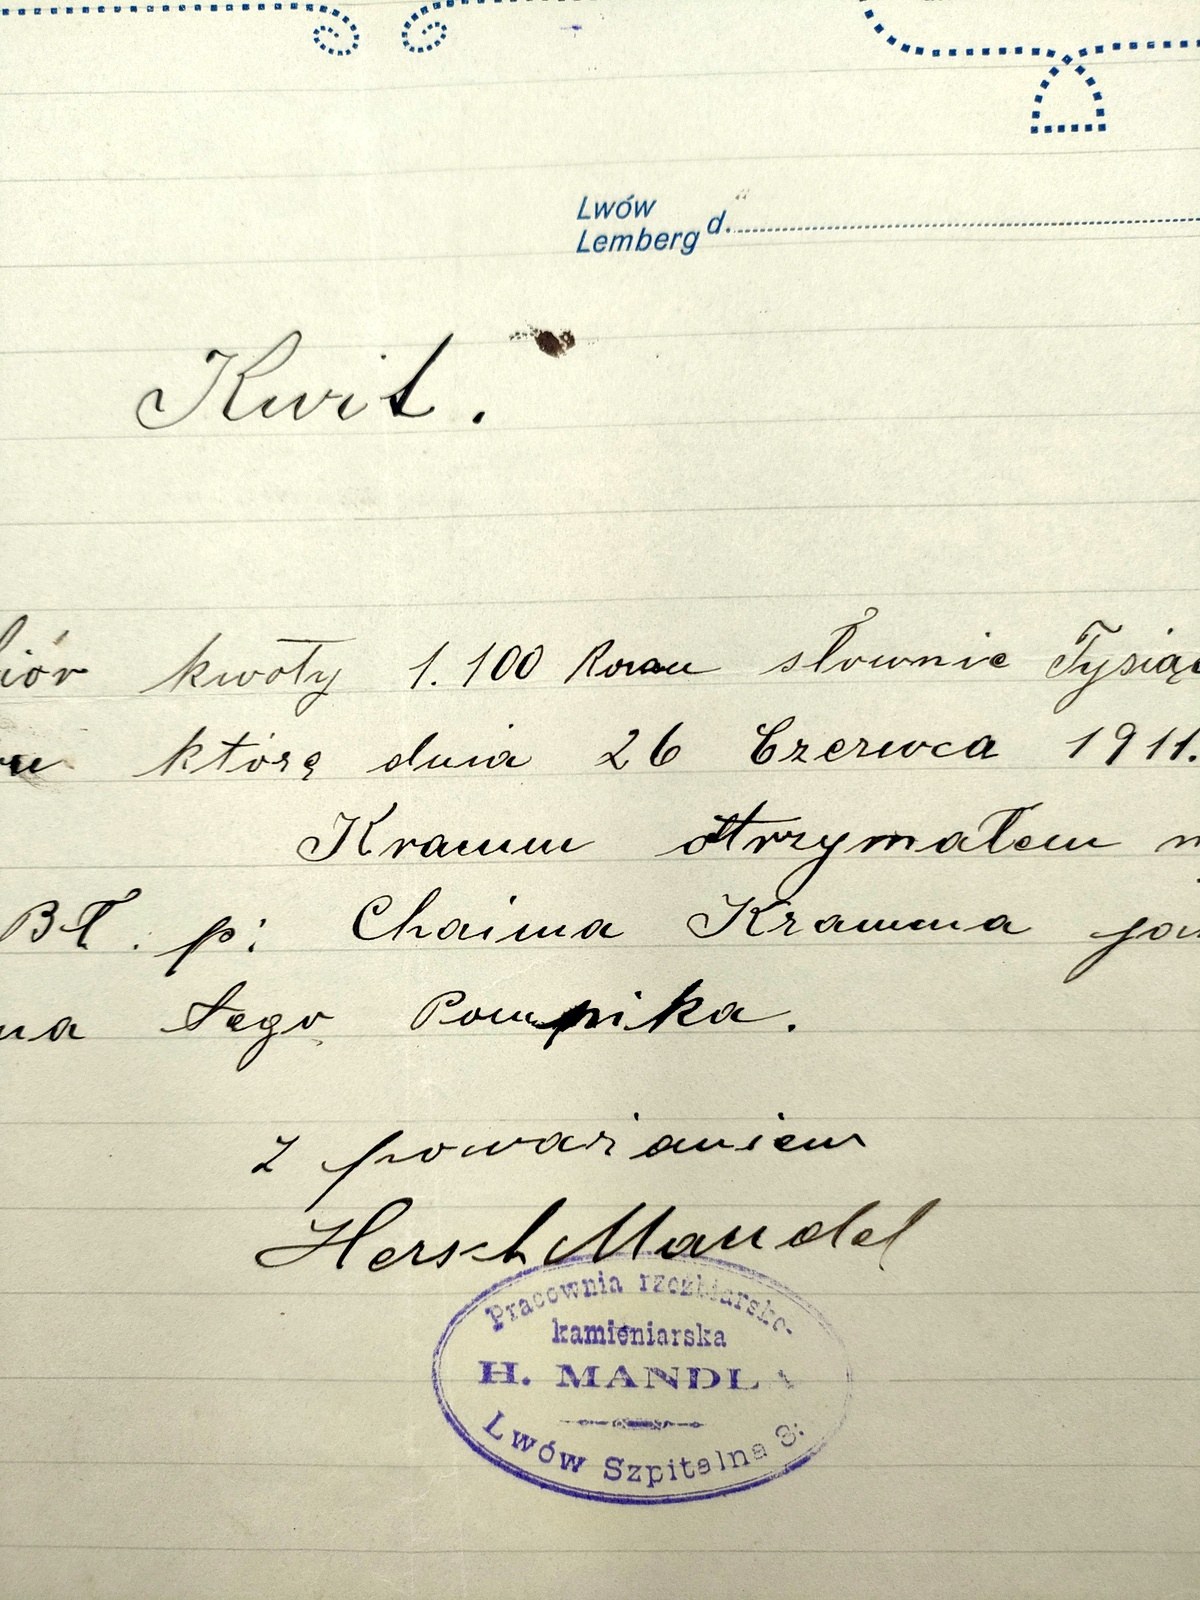 Lwów
Lemberg d.
Kwit.
iór kwoty 1.100 Koron słownie Tysiąc
którą dnia 26 Czerwca 1911.
Kramm otrzymałem
Bł. p: Chaima Kramma
na tego Pomnika.
z powarzaniem
Hersch Mandel
Pracownia rzeźbiarsko-
kamieniarska
H. MANDLA
Lwów Szpitalna 8.